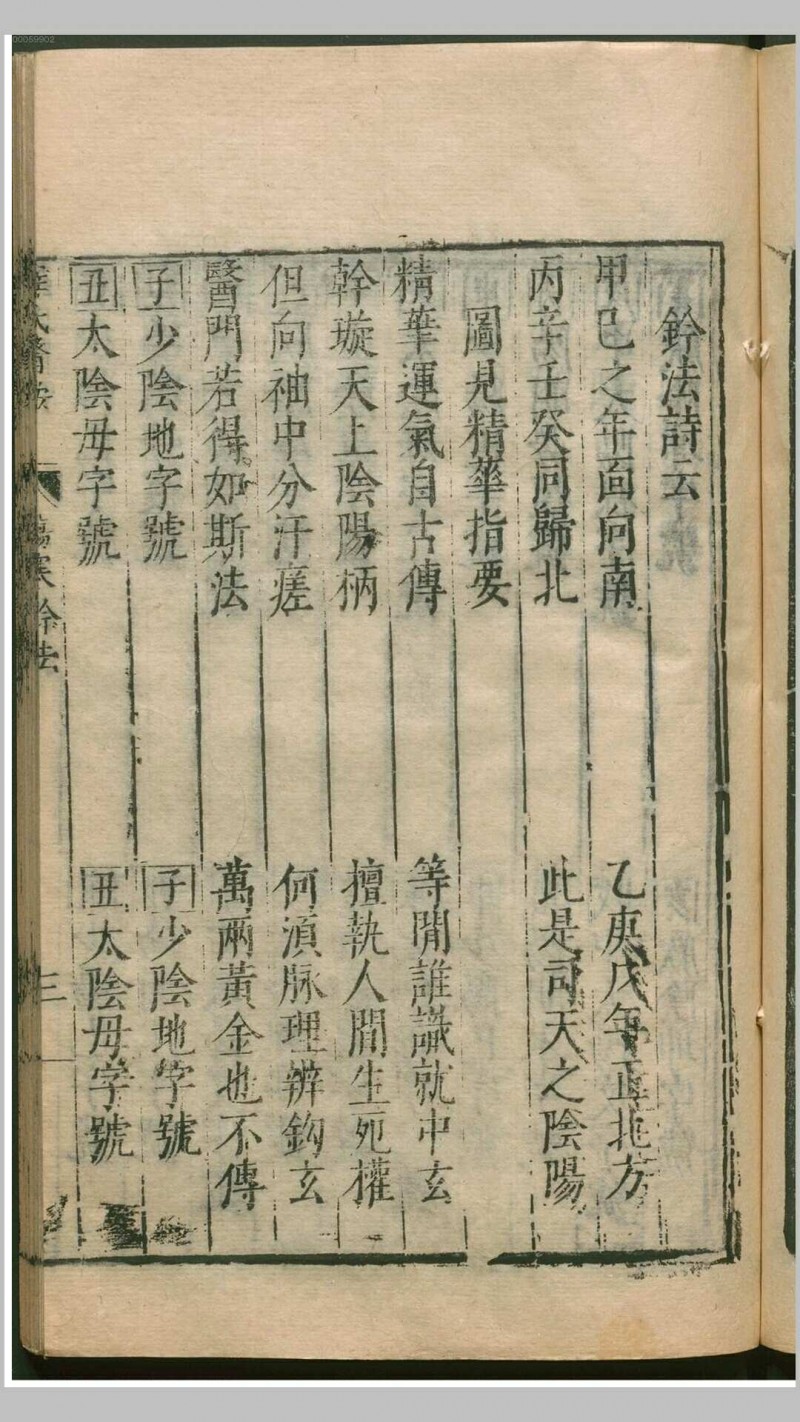 00059902
鈐法詩云
甲己之年面向南 乙庚戊年正北方
丙辛壬癸同歸北 此是司天之陰陽
圖見精華指要
精華運氣自古傳 等閒誰識就中玄
幹璇天上陰陽柄 擅執人間生死權
但向袖中分汗瘥 何湏脉理辨鈎玄
醫門若得如斯法 萬兩黃金也不傳
子少陰地字號 子少陰地字號
丑太陰母字號 丑太陰母字號
薛氏醫按 傷寒鈐法 三